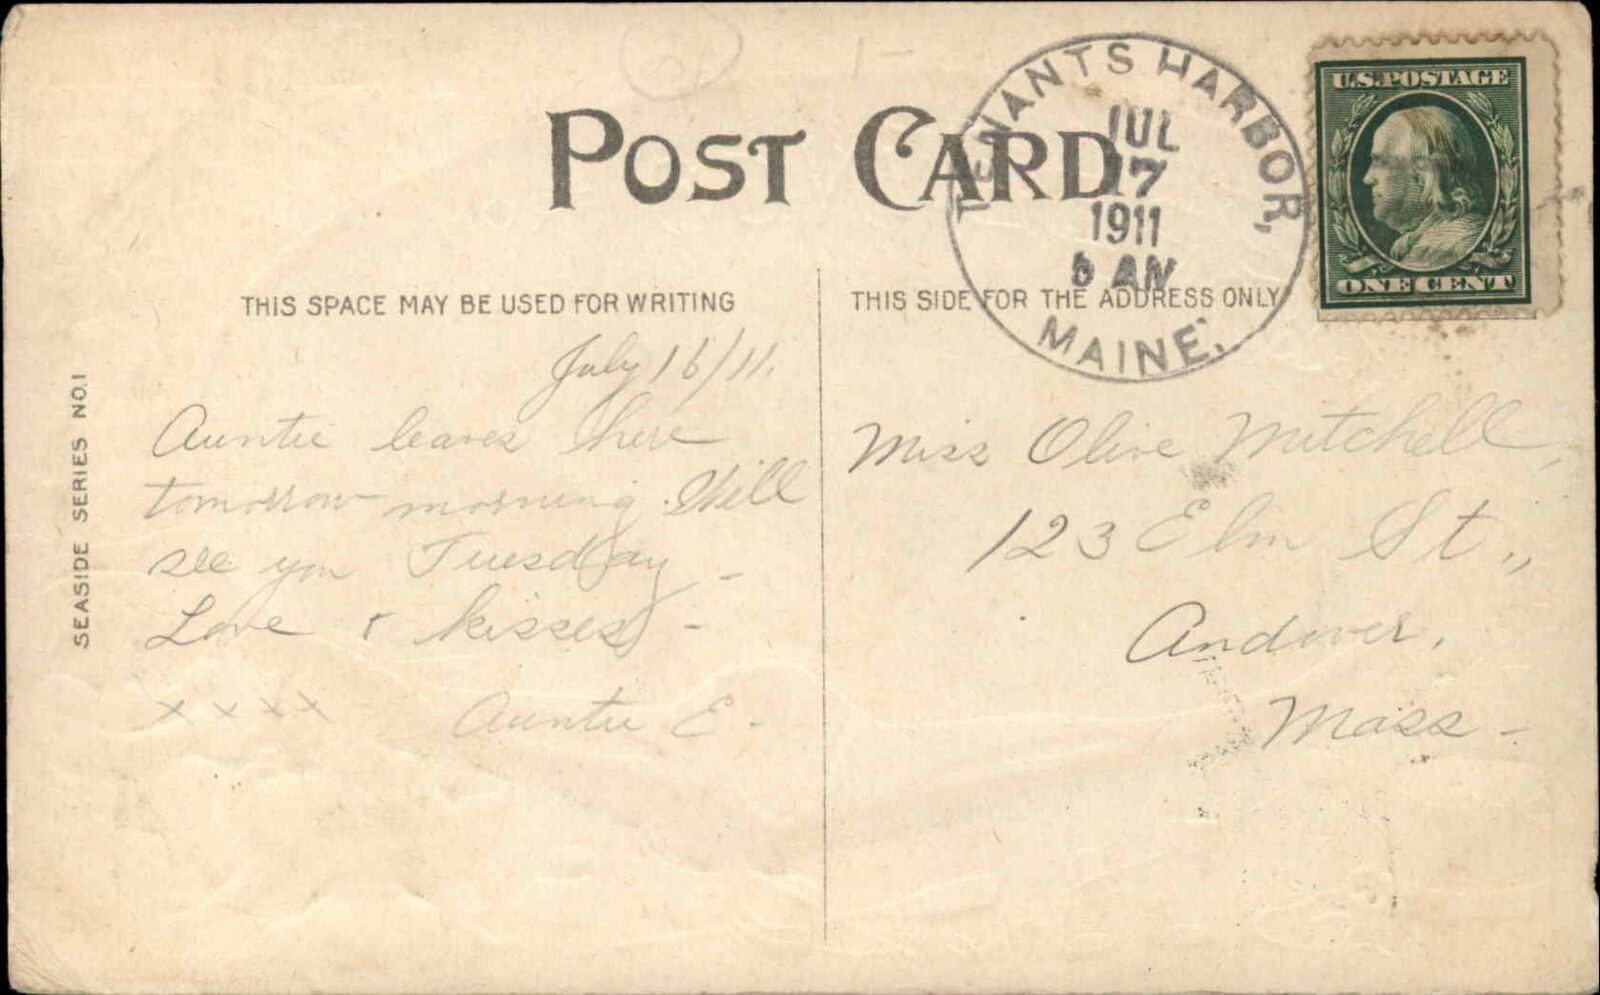 POST CARD
TENANTS HARBOR,
JUL
17
1911
AM
MAINE.
U.S. POSTAGE
ONE CENT
THIS SPACE MAY BE USED FOR WRITING
THIS SIDE FOR THE ADDRESS ONLY
SEASIDE SERIES NO. 1
July 16/11.
Auntie leaves here
tomorrow morning. Will
see you Tuesday -
Love & kisses -
x x x x Auntie E.
Miss Olive Mitchell,
123 Elm St.,
Andover,
Mass -